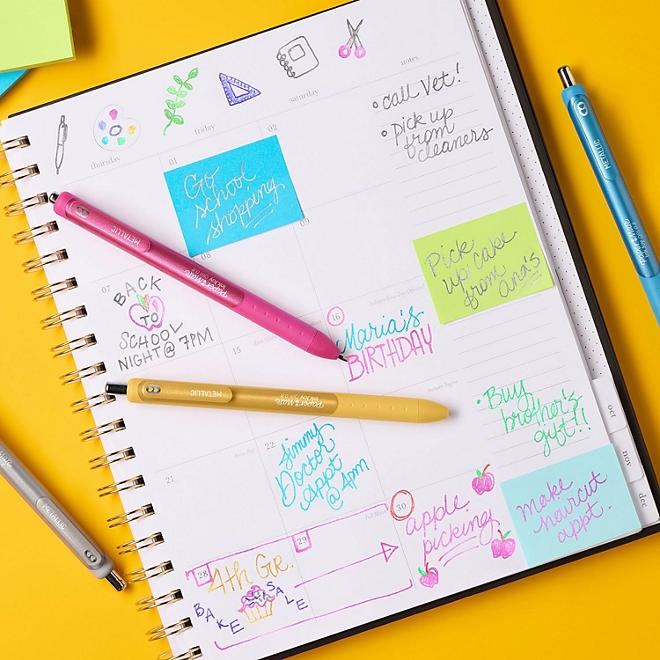 notes
saturday
friday
thursday
• call Vet!
• Pick up
from
cleaners
01
02
Go
school
shopping
Pick
up cake
from
Ana's
08
09
07
BACK
TO
SCHOOL
NIGHT @ 7PM
METALLIC
PAPER MATE
INKJOY
15
16
Maria's
BIRTHDAY
METALLIC
PAPER MATE
INKJOY
METALLIC
METALLIC
• Buy
brother's
gift!!
oct
nov
dec
21
22
Jimmy
Doctor
Appt
@ 4pm
30
apple
picking
make
haircut
appt.
28
29
4th Gr.
BAKE SALE